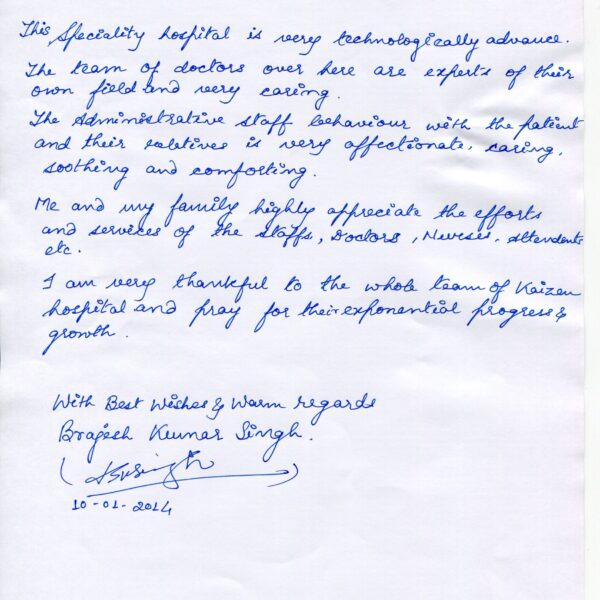 This Speciality hospital is very technologically advance.
The team of doctors over here are experts of their
own field and very caring.
The Administrative staff behaviour with the patient
and their relatives is very affectionate, caring,
soothing and comforting.
Me and my family highly appreciate the efforts
and services of the staffs, Doctors, Nurses, attendents
etc.
I am very thankful to the whole team of Kaizen
hospital and pray for their exponential progress &
growth.
With Best Wishes & Warm regards
Brajesh Kumar Singh.
(BKSingh)
10-01-2014